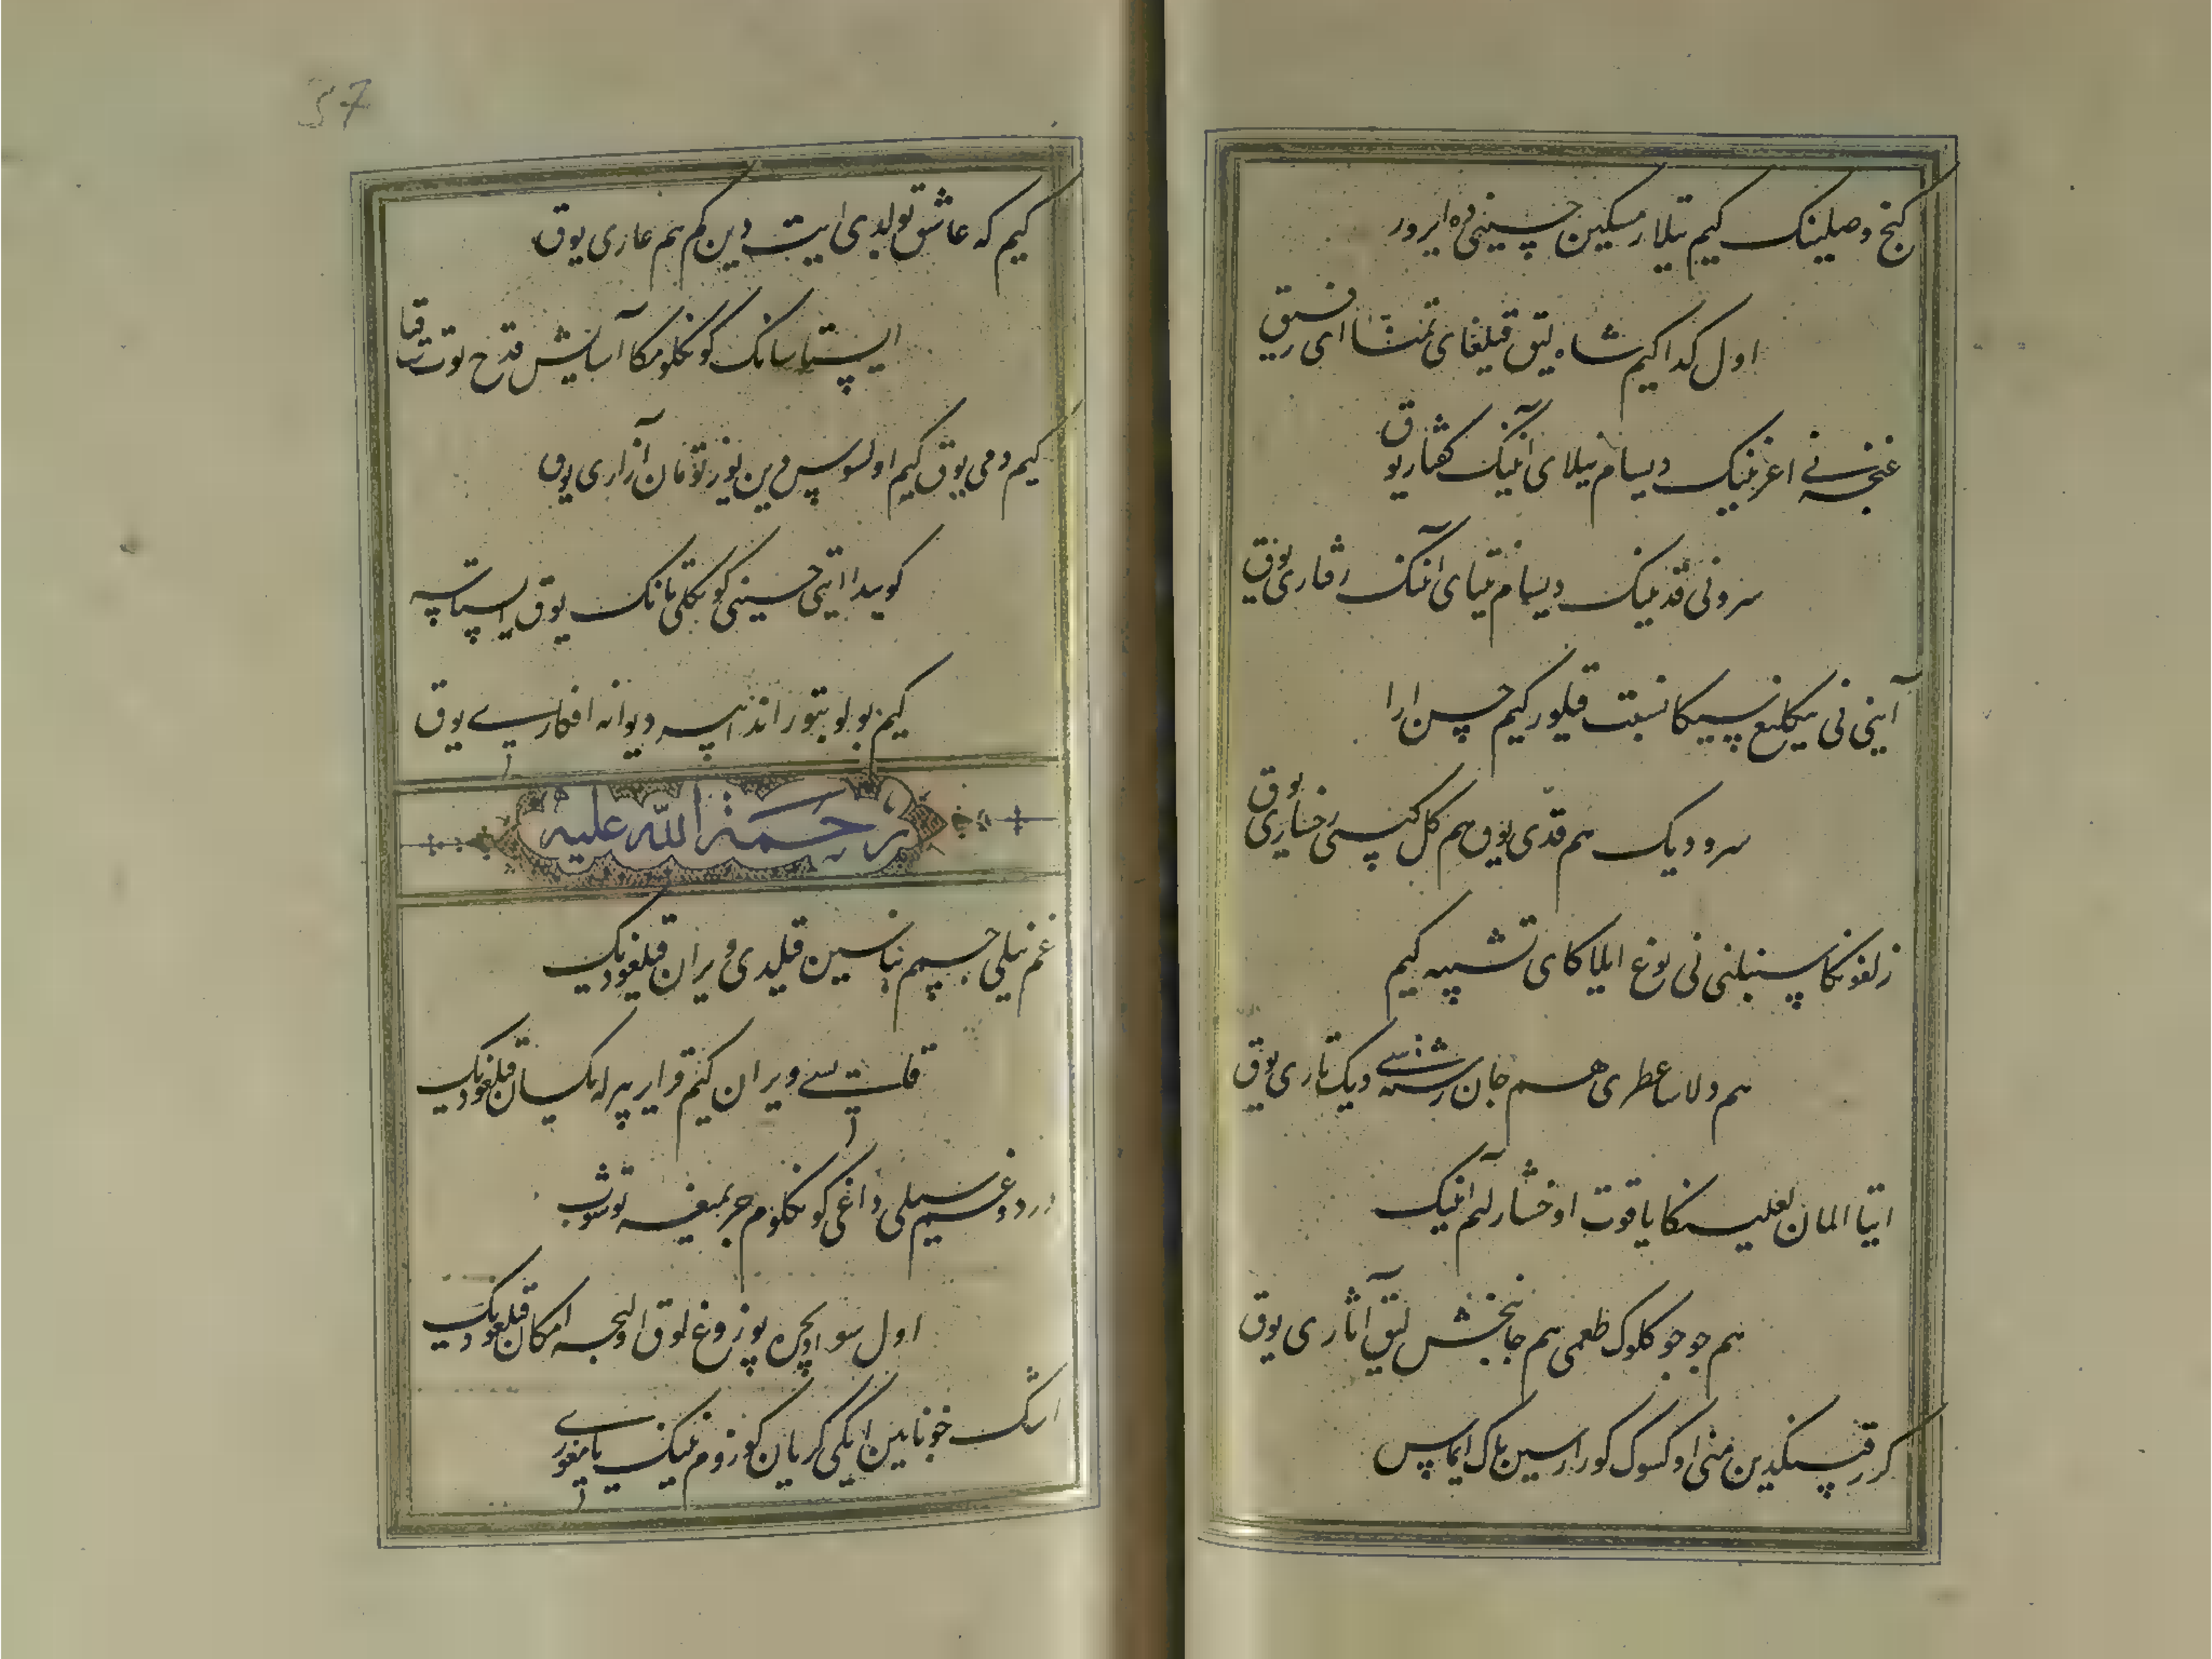 کنج وصلینک کیم تیلار مسکین حسینی ده ایرور
اول کدا کیم شاه لیق قیلغای تمنا ای رفیق
غنچه نی اغزینک دیسام تیلای آنینک کفتاری یوق
سرونی قدینک دیسام نیتای آنینک رفتاری یوق
آینی نی ینکلیغ سیکا نسبت قیلور کیم حسن ارا
سرو دیک هم قدی یوق هم کل کیبی رخساری یوق
زلفونکا سنبلنی نی نوع ایلاکای تشبیه کیم
هم دلاسا عطری هم جان رشته سی دیک تاری یوق
ایتا المان لعلینکا یاقوت اوخشار کیم آنینک
هم جوجوکلوک طعمی هم جانبخش لیق آثاری یوق
کر رقیبنکدین منی اوکسوک کورارسین باک ایماس
37
کیم که عاشق بولدی ایت دین کم هم عاری یوق
ایستاسانک کونکلومکا آسایش قدح توت ساقیا
کیم دمی یوق کیم اولوس دین یوز تومان آزاری یوق
کویدا ایتی حسینی کونکلی تانک یوق ایستاسه
کیم بولوبتور اندا بیر دیوانه افکاری یوق
رحمة الله علیه
غم ییلی جسمم بناسین قیلدی ویران قیلغودیک
قلت سی ویران کیم قرایر بیرله یکسان قیلغودیک
درد و غم سیلی داغی کونکلوم حریمیغه توشوب
اول سو ایچره بوزوغ لوق اولچه امکان قیلغودیک
اشک خونابین ایکی کریان کوزوم نینک یامغوری